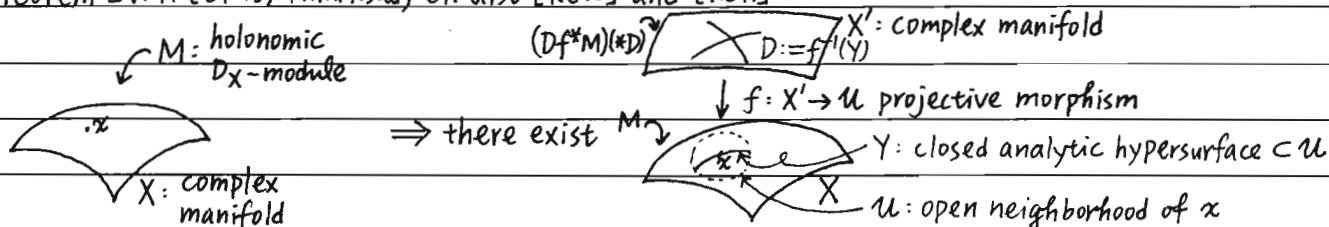 M: holonomic
D_X-module
.x
X: complex
manifold
⇒ there exist
(Df*M)(*D)
D:=f⁻¹(Y)
X': complex manifold
↓ f: X' → U projective morphism
M
x
X
Y: closed analytic hypersurface ⊂ U
U: open neighborhood of x